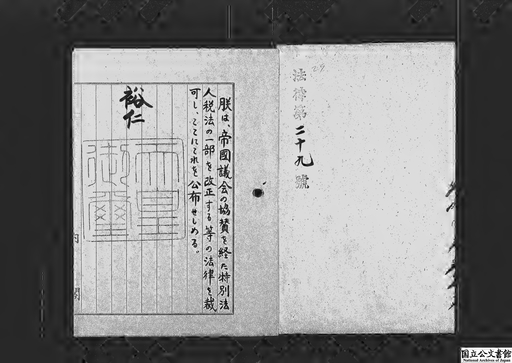 法律第二十九號
朕は、帝國議会の協賛を経た特別法
人税法の一部を改正する等の法律を裁
可し、ここにこれを公布せしめる。
裕仁
天皇
御璽
内閣
国立公文書館
National Archives of Japan